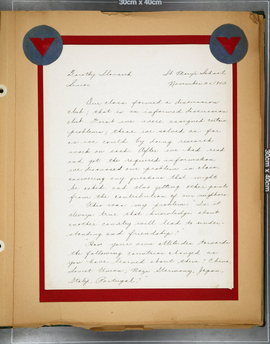 30cm x 40cm
Dorothy
St. Mary's School,
Senior
November
Our class formed a discussion
club; that is an informal discussion
club. First we were assigned certain
problems, these we solved as far
as we could by doing research
work on each. After we had read
and got the required information
we discussed our problems in class
answering any questions that might
be asked and also getting other points
from the contribution of our neighbors.
This was my problem: Is it
always true that knowledge about
another country will lead to under-
standing and friendship?
Have your own attitudes towards
the following countries changed as
you have learned about them? China,
Soviet Union, Nazi Germany, Japan,
Italy, Portugal."
30cm x 40cm